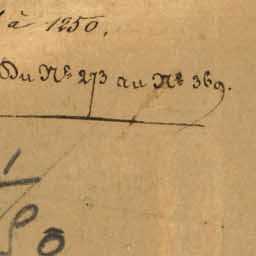 à 1250.
Du Nº 273 au Nº 369.
1
90